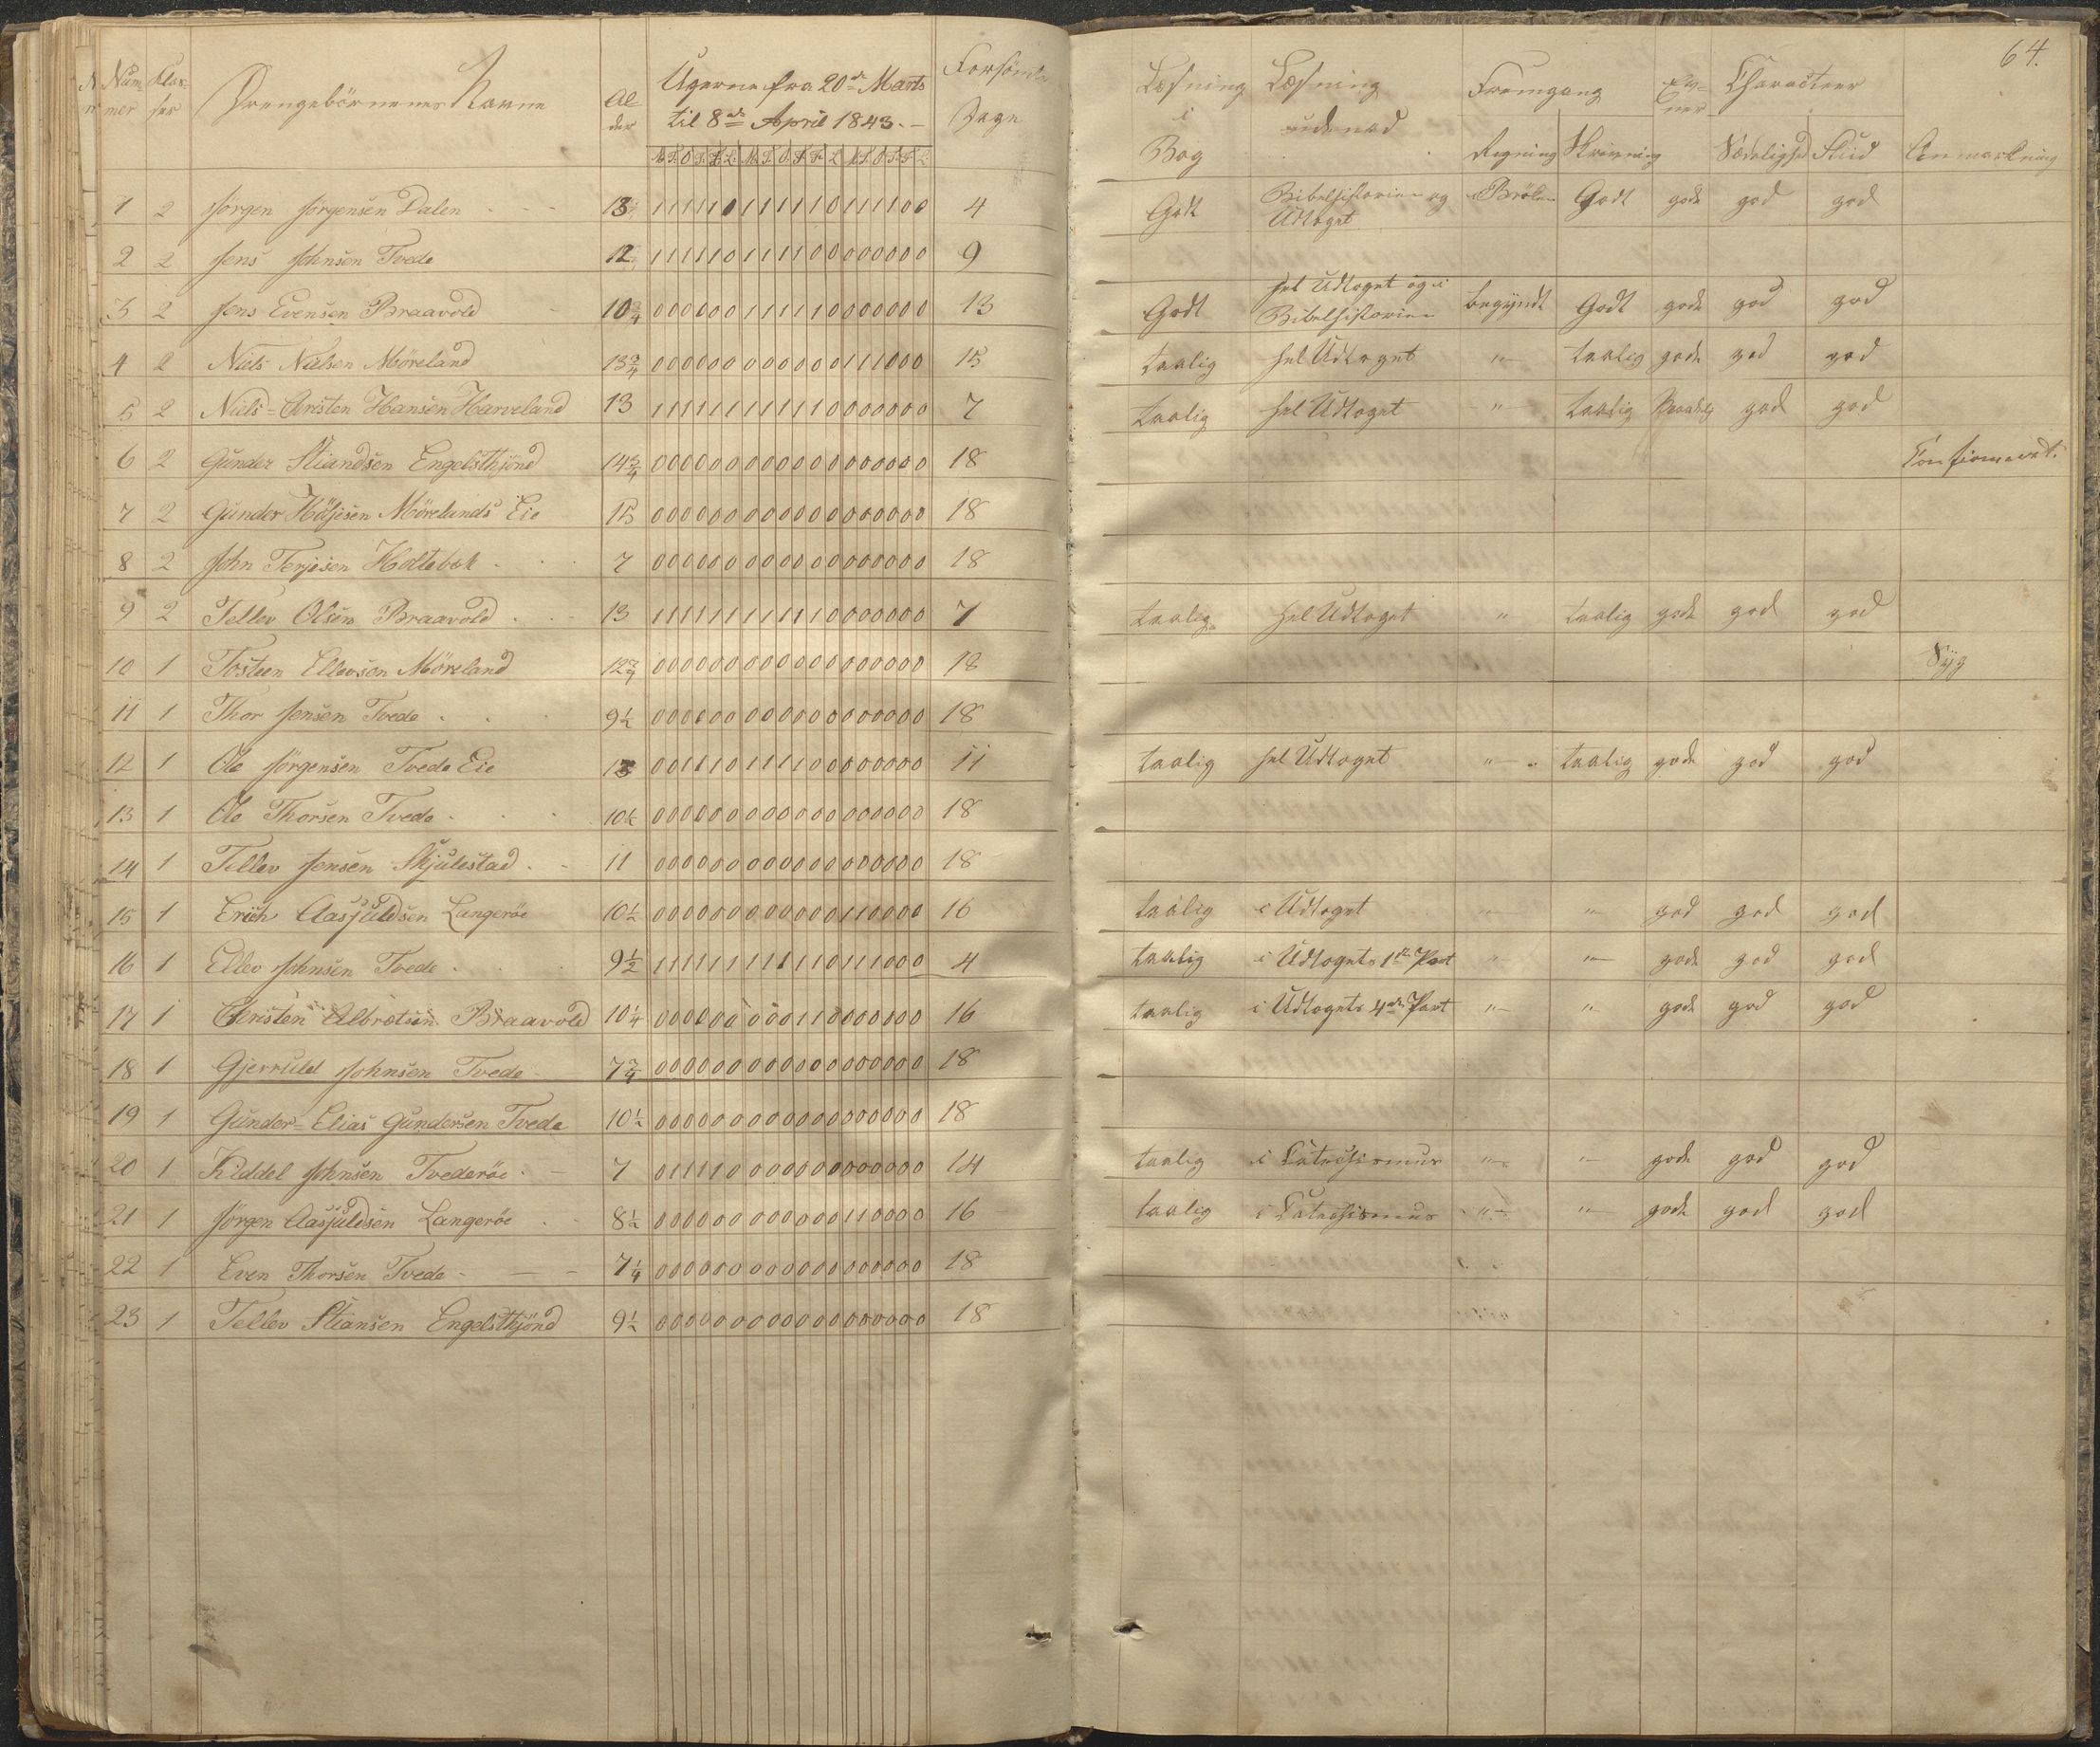 64.
Num mer Klas ser Drengebörnenes Navne Al der Ugerne fra 20de Marts til 8de April 1843.- Forsömte Dage Læsning i Bog Læsning udenad Fremgang Regning Skrivning Ev- ner Characteer Sædelighed Fliid Anmærkning
M T O T F L M T O T F L M T O T F L
1 2 Jörgen Jörgensen Dalen 13 111110111110111100 4 Godt Bibelhistorien og Udtoget i Bröken Godt gode god god
2 2 Jens Johnsen Tvede 12 111110111100000000 9
3 2 Jens Evensen Braavold 10 3/4 000000111110000000 13 Godt hel Udtoget og i Bibelhistorien begyndt Godt gode god god
4 2 Niels Nielsen Möreland 13 3/4 000000000000111000 15 taalig hel Udtoget " taalig gode god god
5 2 Niels=Christen Hansen Harveland 13 111111111110000000 7 taalig hel Udtoget " taalig god god
6 2 Gunder Stiandsen Engelsthjönd 14 3/4 000000000000000000 18 Confirmeret.
7 2 Gunder Höljesen Mörelands Eie 15 000000000000000000 18
8 2 John Terjesen Holtebek 7 000000000000000000 18
9 2 Tellev Olsen Braavold 13 111111111110000000 7 taalig hel Udtoget " taalig gode god god
10 1 Tosteen Ellevson Möreland 12 3/4 000000000000000000 18 Syg
11 1 Thor Jensen Tvede 9 1/2 000000000000000000 18
12 1 Ole Jörgensen Tvede Eie 13 001110111100000000 11 taalig hel Udtoget " taalig gode god god
13 1 Ole Thorsen Tvede 10 1/2 000000000000000000 18
14 1 Tellev Jensen Skjulestad 11 000000000000000000 18
15 1 Erich Aasjuldsen Langeröe 10 1/2 000000000000110000 16 taalig i Udtoget " " god god god
16 1 Ellev Johnsen Tvede 9 1/2 111111111110111000 4 taalig i Udtogets 1ste Part " " gode god god
17 1 Christen Albretsen Braavold 10 1/4 000000000110000000 16 taalig i Udtogets 4de Part " " gode god god
18 1 Gjerruld Johnsen Tvede 7 3/4 000000000000000000 18
19 1 Gunder=Elias Gundersen Tvede 10 1/2 000000000000000000 18
20 1 Kiddel Johnsen Tvederöe 7 011110000000000000 14 taalig i Catechismus " " gode god god
21 1 Jörgen Aasjuldsen Langeröe 8 1/2 000000000000110000 16 taalig i Catechismus " " gode god god
22 1 Even Thorsen Tvede 7 1/4 000000000000000000 18
23 1 Tellev Stiansen Engelsthjönd 9 1/2 000000000000000000 18